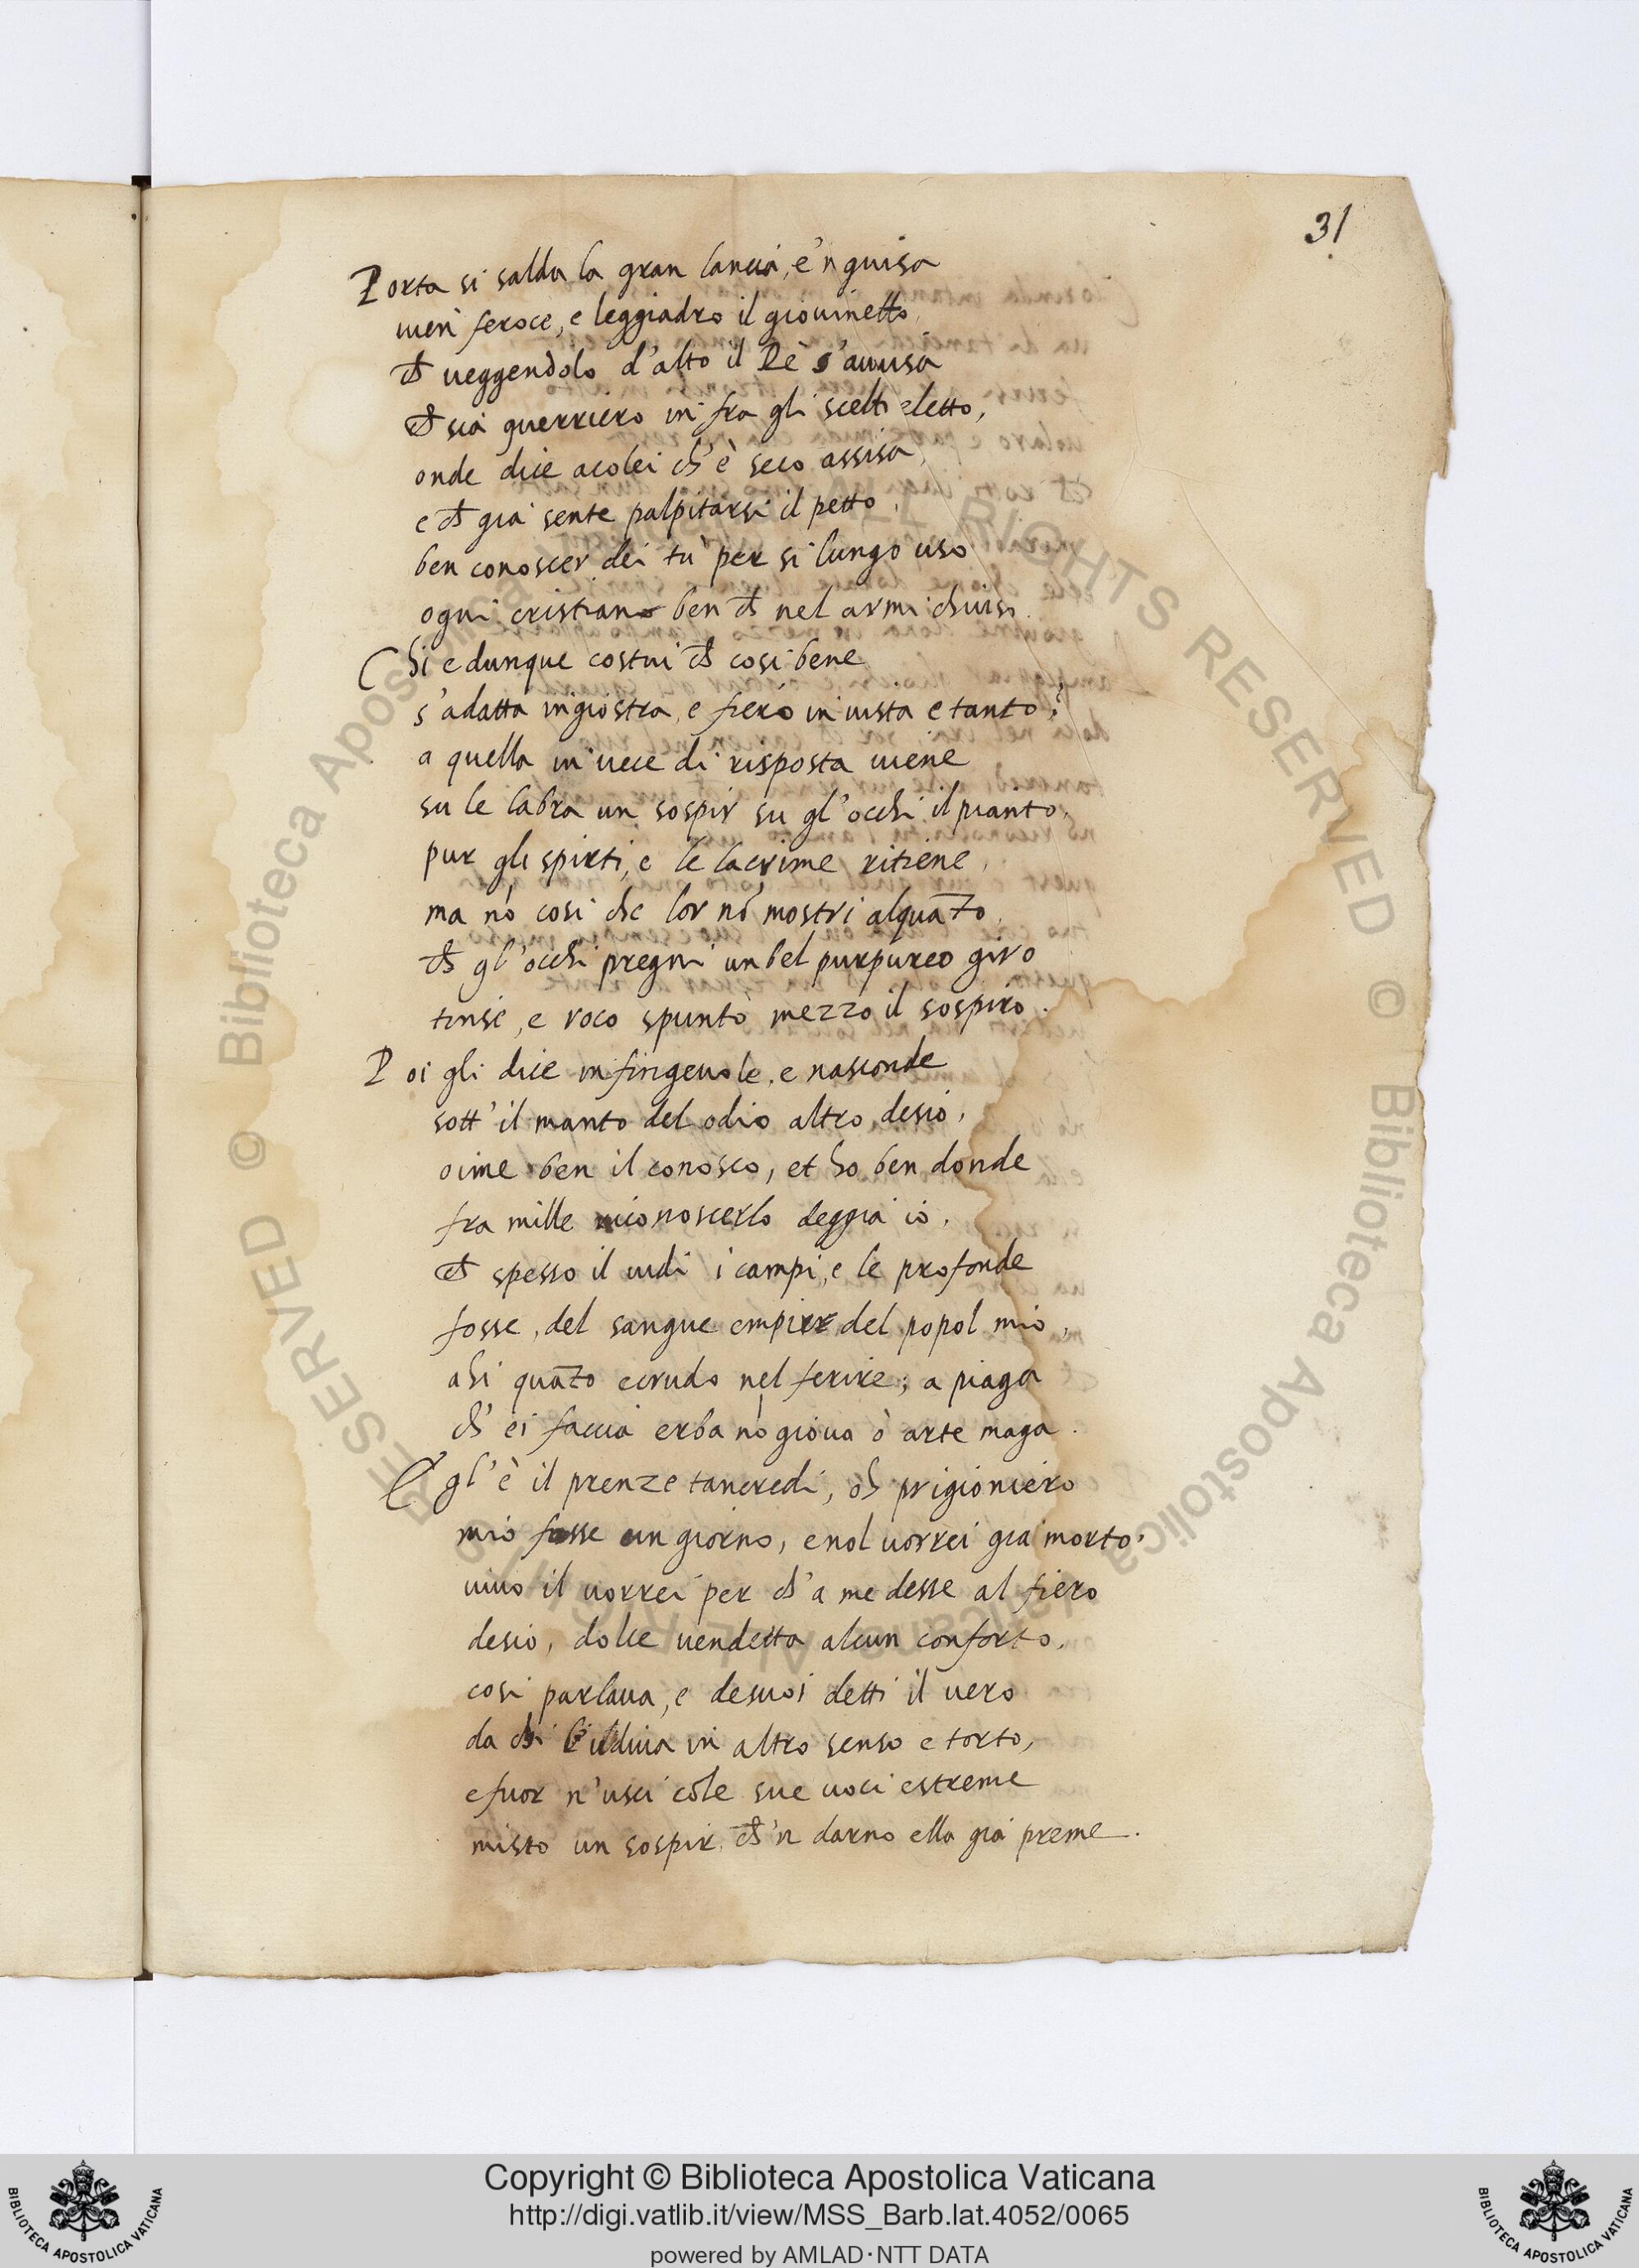 31
Porta si salda la gran lancia, e'n guisa
uien feroce, e leggiadro il giouinetto,
ch ueggendolo d'alto il Rè s'auuisa
ch sia guerriero in fra gli scelti eletto,
onde dice acolei ch'è seco assisa,
e ch gia sente palpitarsi il petto,
ben conoscer dei tu per si lungo uso
ogni cristiano ben ch nel armi chiuso.
Chi e dunque costui ch cosi bene
s'adatta in giostra, e fiero in uista e tanto?
a quella in uece di risposta uiene
su le labra un sospir su gl'occhi il pianto.
pur gli spirti, e le lacrime ritiene,
ma nō cosi che lor nō mostri alquāto.
ch gl'occhi pregni un bel purpureo giro
tinse, e roco spuntò mezzo il sospiro.
Poi gli dice infingeuole, e nasconde
sott'il manto del odio altro desio,
oime ben il conosco, et ho ben donde
fra mille riconoscerlo deggia io.
ch spesso il uidi i campi, e le profonde
fosse, del sangue empirr del popol mio,
ahi quāto ecrudo nel ferire; a piaga
ch'ei faccia erba nō gioua ò arte maga.
Egl'è il prenze tancredi, oh prigioniero
mio fosse un giorno, e nol uorrei gia morto.
uiuo il uorrei per ch'a me desse al fiero
desio, dolce uendetta alcun conforto.
cosi parlaua, e desuoi detti il uero
da chi l'udiua in altro senso e torto,
e fuor n'usci cōle sue uoci estreme
misto un sospir, ch'n darno ella gia preme.
© Biblioteca Apostolica Vaticana ALL RIGHTS RESERVED © Biblioteca Apostolica Vaticana ALL RIGHTS RESERVED
Copyright © Biblioteca Apostolica Vaticana
http://digi.vatlib.it/view/MSS_Barb.lat.4052/0065
powered by AMLAD·NTT DATA
BIBLIOTECA APOSTOLICA VATICANA
BIBLIOTECA APOSTOLICA VATICANA